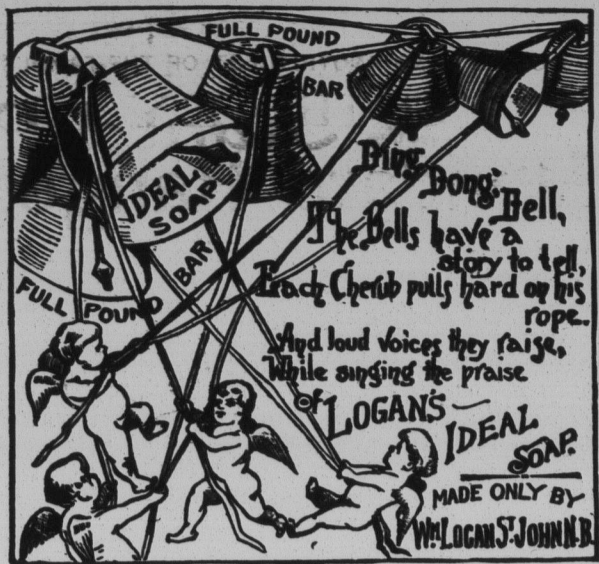 FULL POUND
BAR
IDEAL
SOAP
FULL POUND BAR
Ding
Dong:
Bell,
The Bells have a
story to tell,
Each Cherub pulls hard on his
rope.
And loud voices they raise,
While singing the praise
of LOGAN'S
IDEAL
SOAP.
MADE ONLY BY
WM LOGAN ST. JOHN N.B.